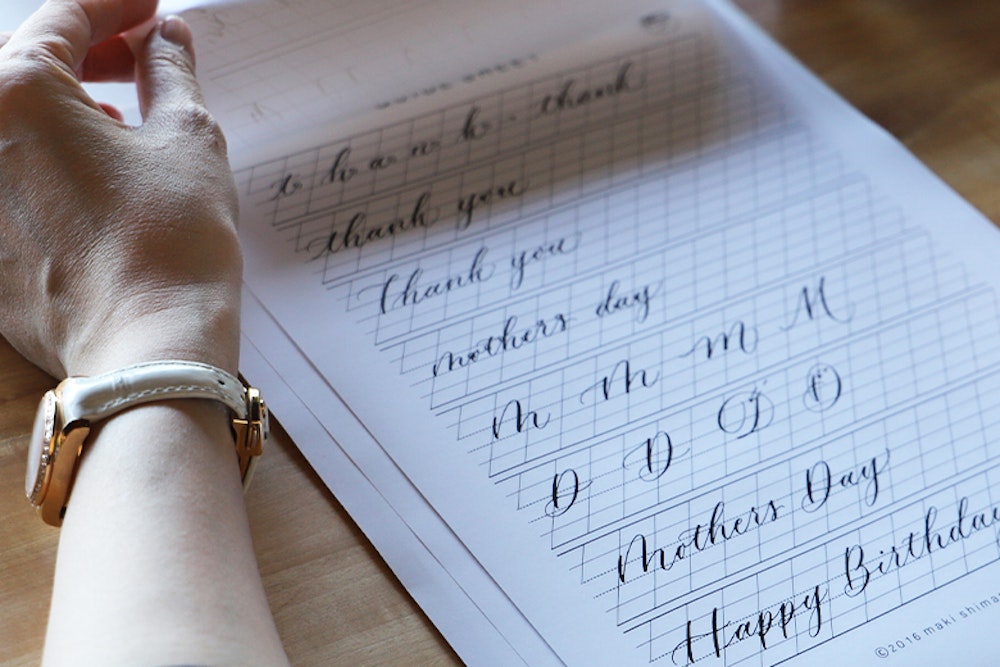 GUIDE SHEET
t h a n k . thank
thank you
thank you
mothers day
M M M M
D D D D
Mothers Day
Happy Birthday
©2016 maki shima